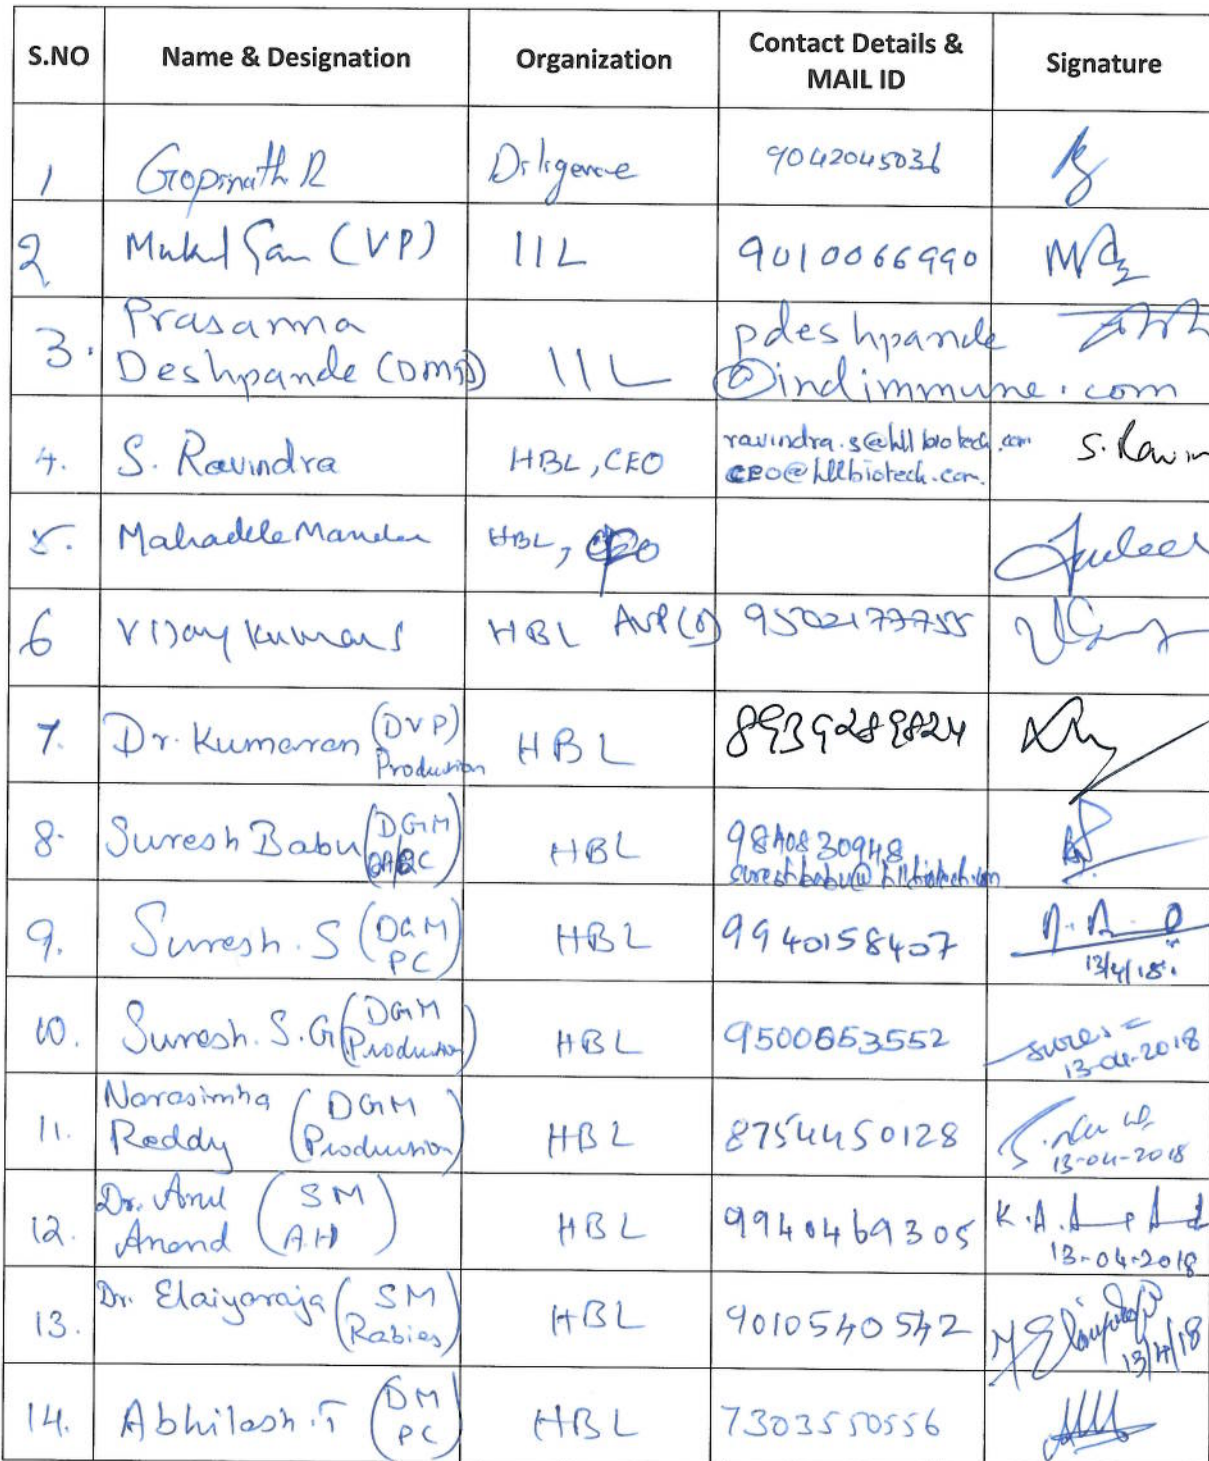 S.NO Name & Designation Organization Contact Details & MAIL ID Signature
1 Gopinath R Diligence 9042045036
2 Mukul (VP) IIL 9010066990
3. Prasanna Deshpande IIL pdeshpande @indimmune.com
4. S. Ravindra HBL, CEO ravindra.s@hllbiotech.com CEO@hllbiotech.com. S. Ravin
5. HBL,
6 Vijay Kumar S HBL 9502177755
7. Dr. Kumaran (DVP) Production HBL 8939289824
8. Suresh Babu (DGM QA/QC) HBL 9840830948 sureshbabu@hllbiotech.com
9. Suresh. S (DGM PC) HBL 9940158407 13/4/18.
10. Suresh. S.G (DGM Production) HBL 9500663552 13-04-2018
11. Narasimha Reddy (DGM Production) HBL 8754450128 13-04-2018
12. Dr. Arul Anand (SM A.H) HBL 9940469305 13-04-2018
13. Dr. Elaiyaraja (SM Rabies) HBL 9010540542 13/4/18
14. Abhilash.T (DM PC) HBL 7303550556